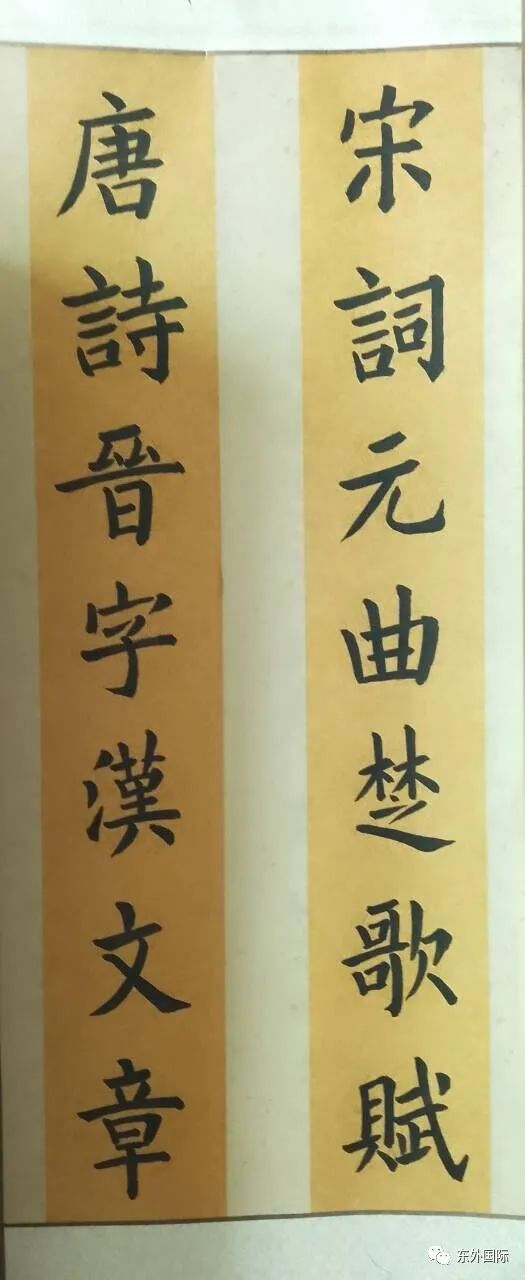 宋詞元曲楚歌賦
唐詩晉字漢文章
东外国际